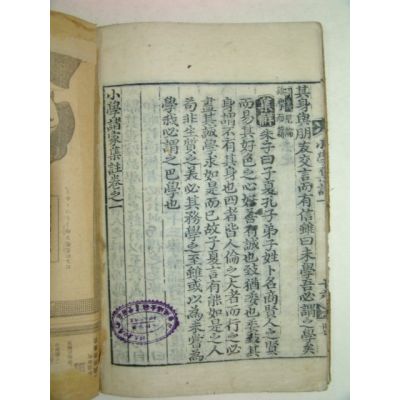 小學集註一
其身與朋友交言而有信雖曰未學吾必謂之學矣
集解 朱子曰子夏孔子弟子姓卜名商賢人之賢
而易其好色之心好善有誠也致猶委也委致其
身謂不有其身也四者皆人倫之大者而行之必
盡其誠學求如是而已故子夏言有能如是之人
苟非生質之美必其務學之至雖或以爲未嘗爲
學我必謂之已學也
小學諸家集註卷之一